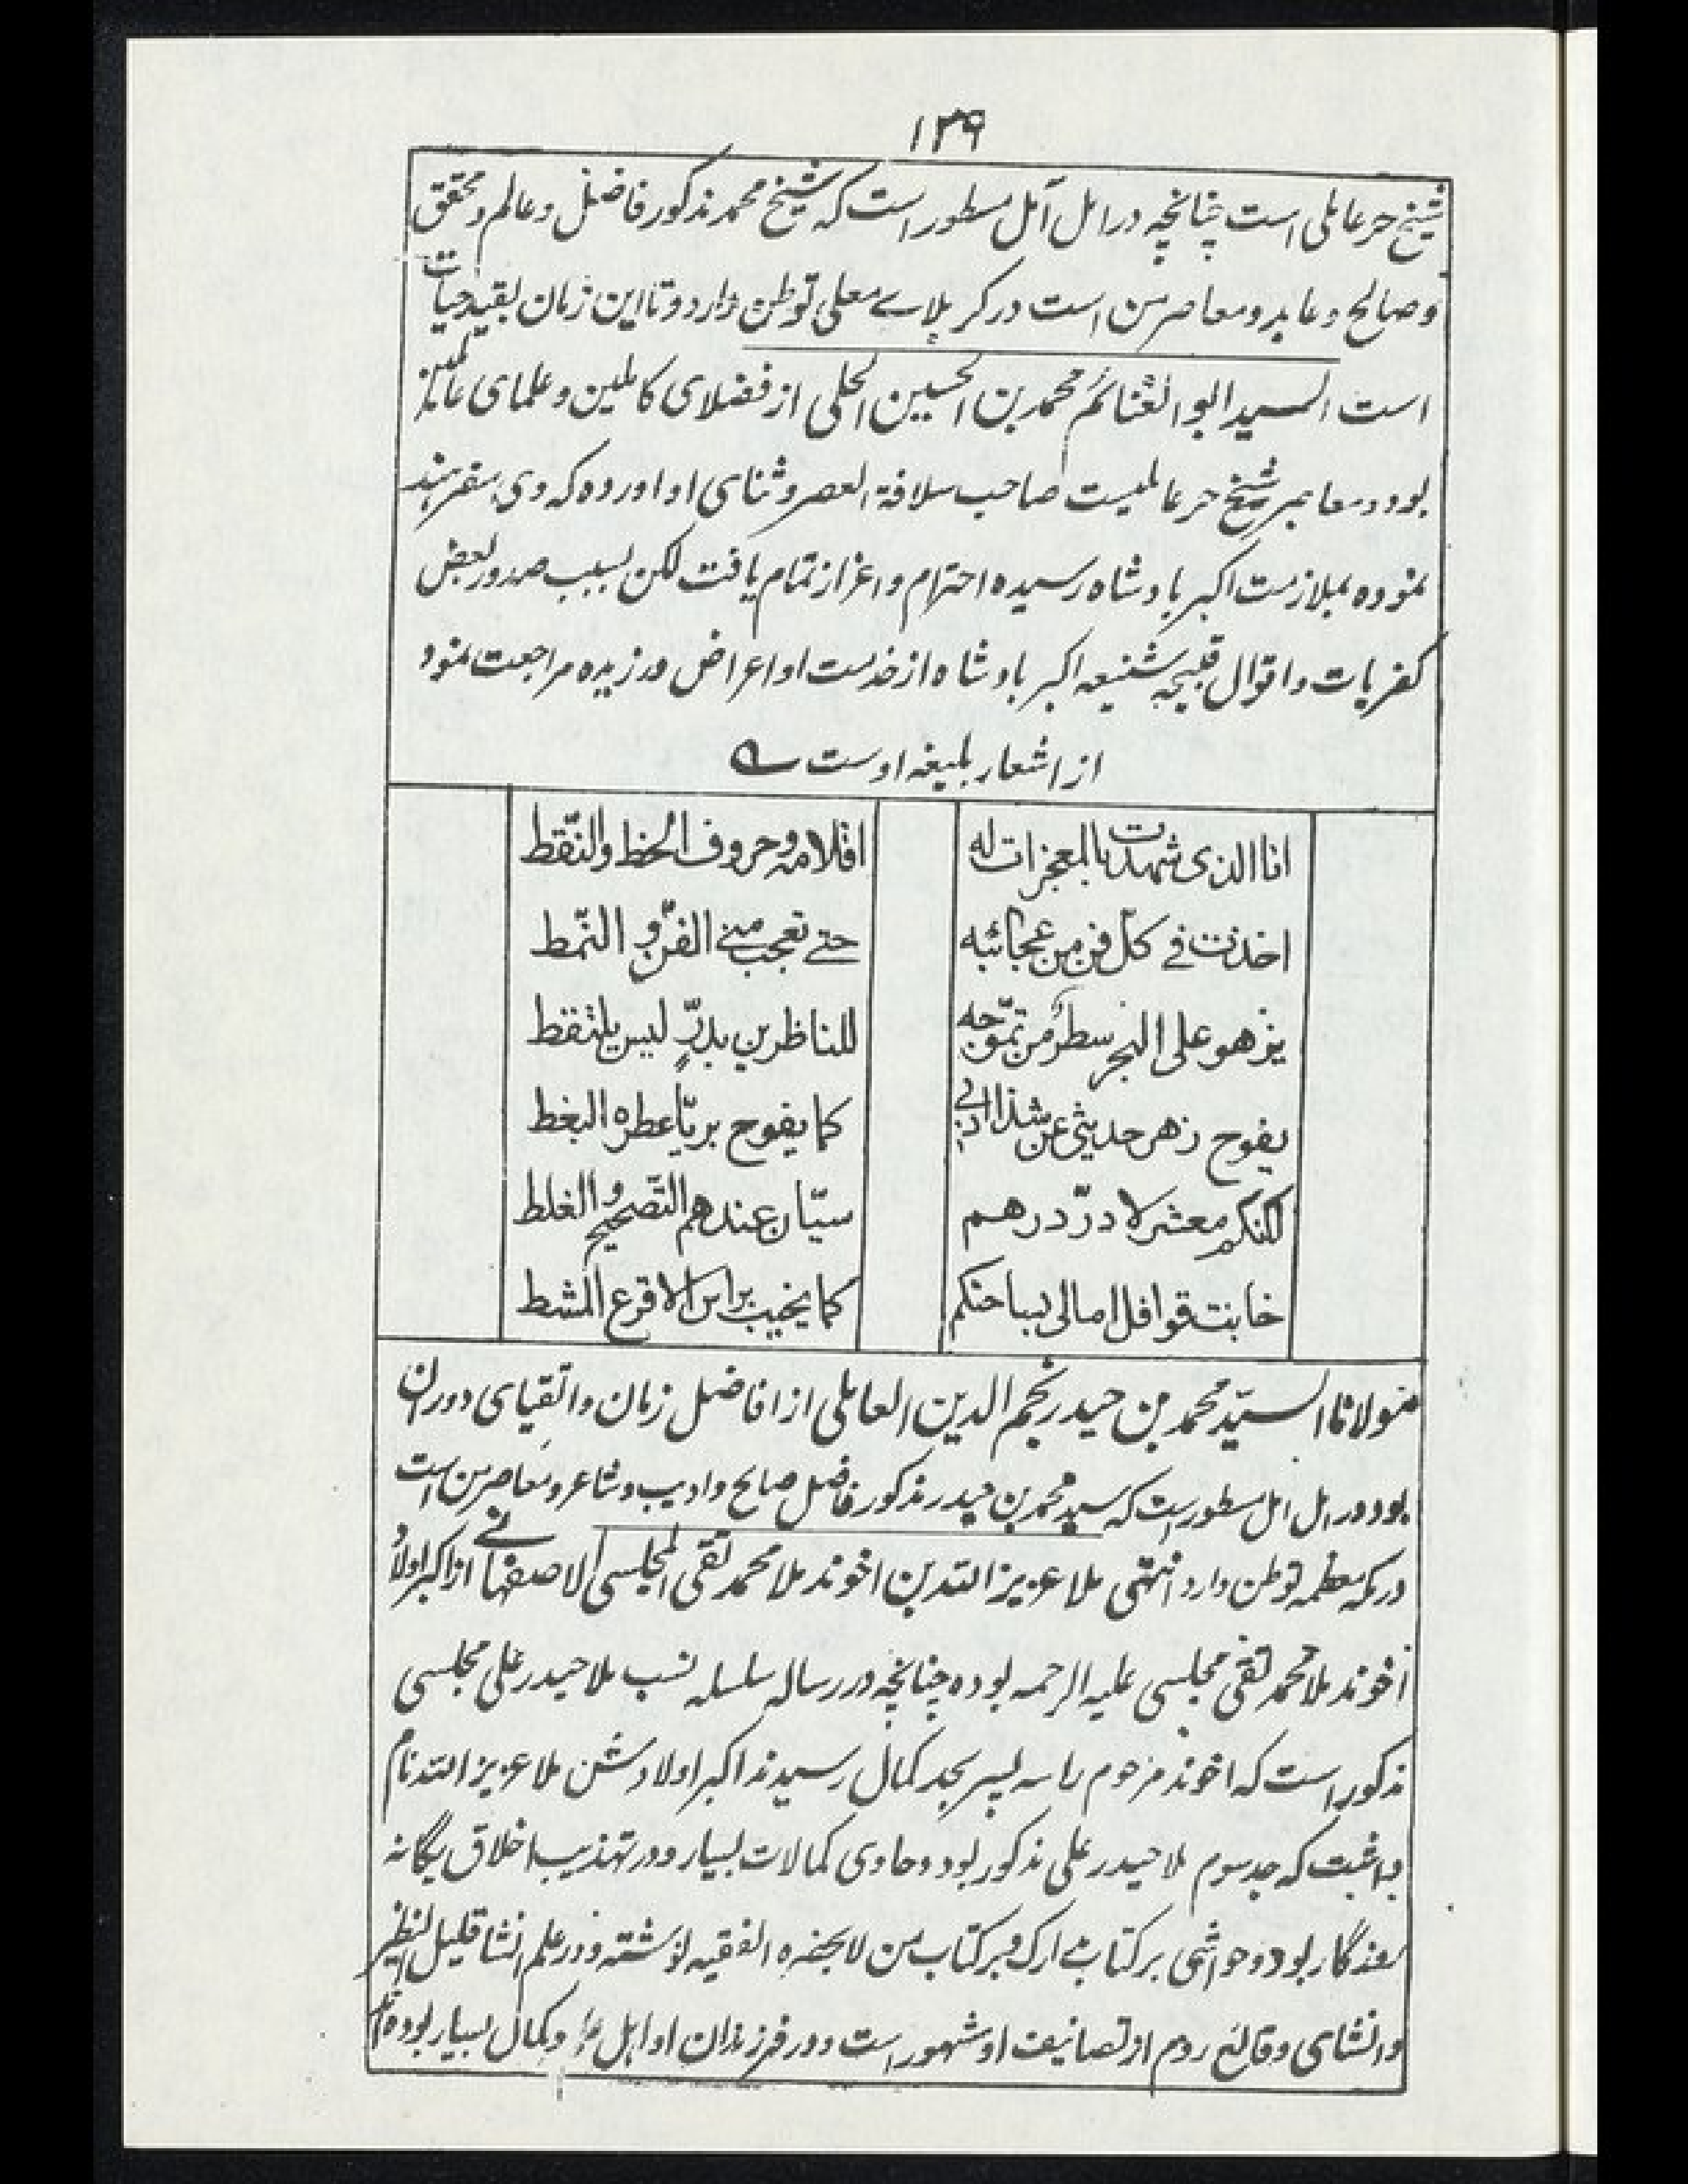 ۱۳۹
شیخ حر عاملی است چنانچه در امل آمل مسطور است که شیخ محمد مذکور فاضل و عالم و محقق
و صالح و عابد و معاصر من است در کربلاے معلی توطن دارد و تا این زمان بقید حیات
است السید ابو الغنائم محمد بن الحسین الحلی از فضلای کاملین و علمای عاملین
بود و معاصر شیخ حر عاملیست صاحب سلافة العصر و ثنای او اورده که وی سفر هند
نموده بملازمت اکبر بادشاه رسیده احترام و اعزاز تمام یافت لکن بسبب صدور بعض
کفریات و اقوال قبیحه شنیعه اکبر بادشاه از خدمت او اعراض ورزیده مراجعت نمود
از اشعار بلیغه اوست
انا الذی شهدت بالمعجزات له اقلامه وحروف الخط والنّقط
اخذت فے کلّ فن من عجائبه حتے تعجب منے الفنّ و النّمط
یزهو علی البحر سطر من تموّجه للناظرین بدرٍّ لیس یلتقط
یفوح زهر حدیثی عن شذا ادبی کما یفوح بریّا عطره
لکنکم معشر لا درّ درهم سیّان عندهم التّصحیح و الغلط
خابت قوافل امالی بساحتکم کما یخیب براس الاقرع المشط
مولانا السیّد محمد بن حیدر نجم الدین العاملی از افاضل زمان و اتقیای دوران
بود در امل امل مسطور است که سید محمد بن حیدر مذکور فاضل صالح و ادیب و شاعر و معاصر من است
در مکه معظمه توطن دارد انتهی ملا عزیز الله بن اخوند ملا محمد تقی المجلسی الاصفهانے از اکبر اولاد
اخوند ملا محمد تقی مجلسی علیه الرحمه بوده چنانچه در رساله سلسله نسب ملا حیدر علی مجلسی
مذکور است که اخوند مرحوم را سه پسر بحد کمال رسیدند اکبر اولادش ملا عزیز الله نام
داشت که جد سوم ملا حیدر علی مذکور بود و حاوی کمالات بسیار و در تهذیب اخلاق یگانه
روزگار بود و حواشی بر کتاب مدارک و بر کتاب من لا یحضره الفقیه نوشته و در علم انشا قلیل النظیر
و انشای وقائع روم از تصانیف او مشهور است و در فرزندان او اهل و کمال بسیار بوده